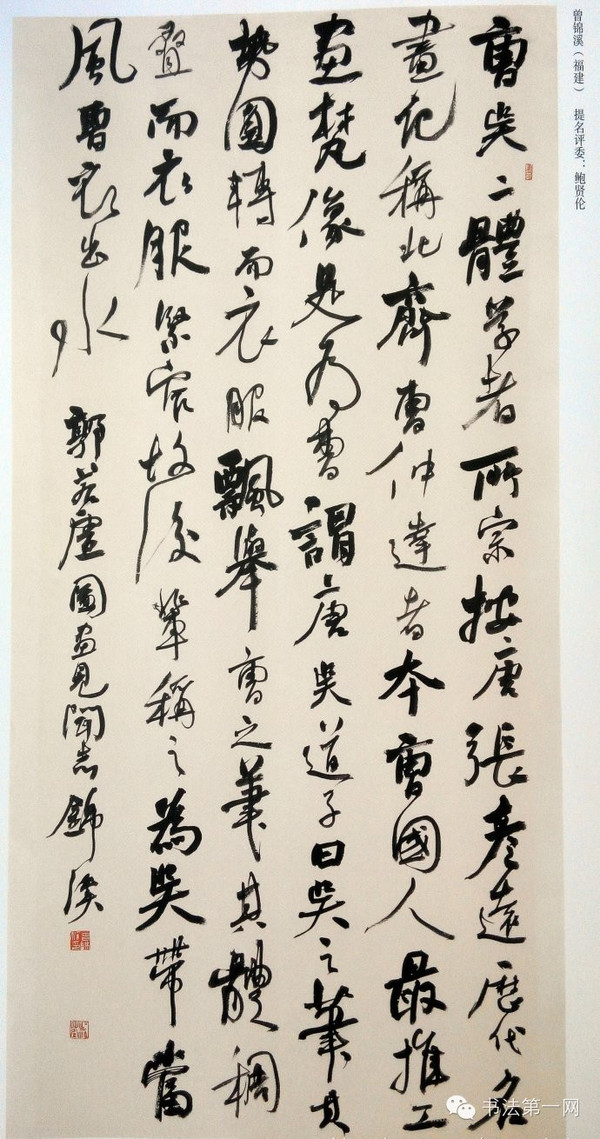 曹吴二體学者所宗按唐張彦遠歷代名
畫记稱北齊曹仲達者本曹國人最推工
画梵像是为曹謂唐吴道子曰吴之筆其
势圆轉而衣服飄舉曹之筆其體稠
疊而衣服緊窄故後辈稱之為吴带當
風曹衣出水
郭若虚圖画見闻志錦溪
曾锦溪（福建） 提名评委：鲍贤伦
书法第一网